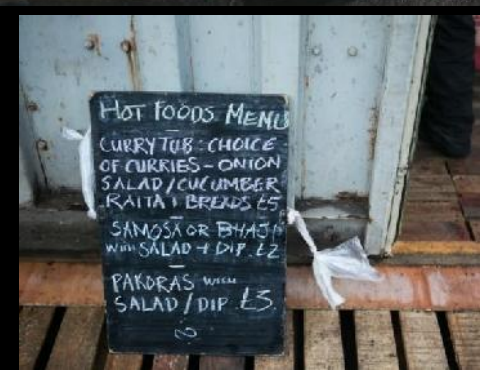 HOT FOODS MENU
CURRY TUB: CHOICE
OF CURRIES - ONION
SALAD / CUCUMBER
RAITA & BREADS £5
SAMOSA OR BHAJI
WITH SALAD + DIP £2
PAKORAS WITH
SALAD / DIP £3